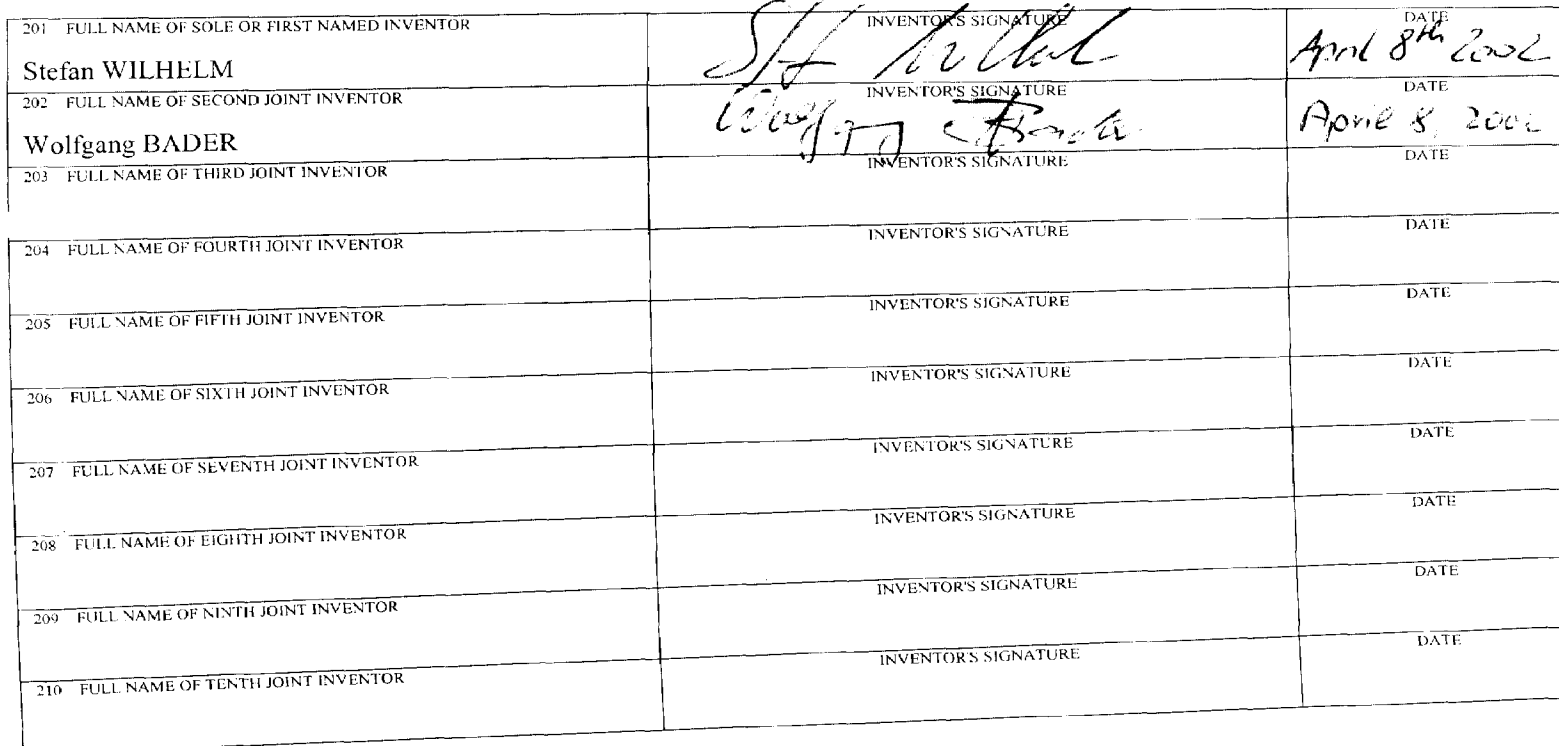 201 FULL NAME OF SOLE OR FIRST NAMED INVENTOR INVENTOR'S SIGNATURE DATE
Stefan WILHELM April 8th 2002
202 FULL NAME OF SECOND JOINT INVENTOR INVENTOR'S SIGNATURE DATE
Wolfgang BADER Wolfgang Bader April 8, 2002
203 FULL NAME OF THIRD JOINT INVENTOR INVENTOR'S SIGNATURE DATE
204 FULL NAME OF FOURTH JOINT INVENTOR INVENTOR'S SIGNATURE DATE
205 FULL NAME OF FIFTH JOINT INVENTOR INVENTOR'S SIGNATURE DATE
206 FULL NAME OF SIXTH JOINT INVENTOR INVENTOR'S SIGNATURE DATE
207 FULL NAME OF SEVENTH JOINT INVENTOR INVENTOR'S SIGNATURE DATE
208 FULL NAME OF EIGHTH JOINT INVENTOR INVENTOR'S SIGNATURE DATE
209 FULL NAME OF NINTH JOINT INVENTOR INVENTOR'S SIGNATURE DATE
210 FULL NAME OF TENTH JOINT INVENTOR INVENTOR'S SIGNATURE DATE